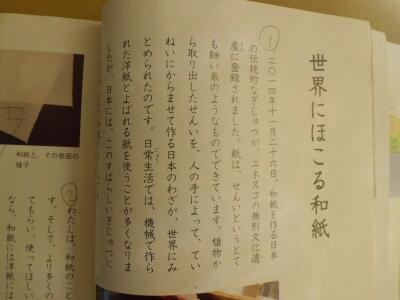 世界にほこる和紙
1
二〇一四年十一月二十六日、和紙を作る日本
の伝統的なぎじゅつが、ユネスコの無形文化遺
産に登録されました。紙は、せんいというとて
も細い糸のようなものでできています。植物か
ら取り出したせんいを、人の手によって、てい
ねいにからませて作る日本のわざが、世界にみ
とめられたのです。日常生活では、機械で作ら
れた洋紙とよばれる紙を使うことが多くなりま
したが、日本には、このすばらしいぎじゅつに
和紙と、その表面の
様子
2
わたしは、和紙のこと
す。そして、より多くの
てもらい、使ってほしい
なら、和紙には洋紙に